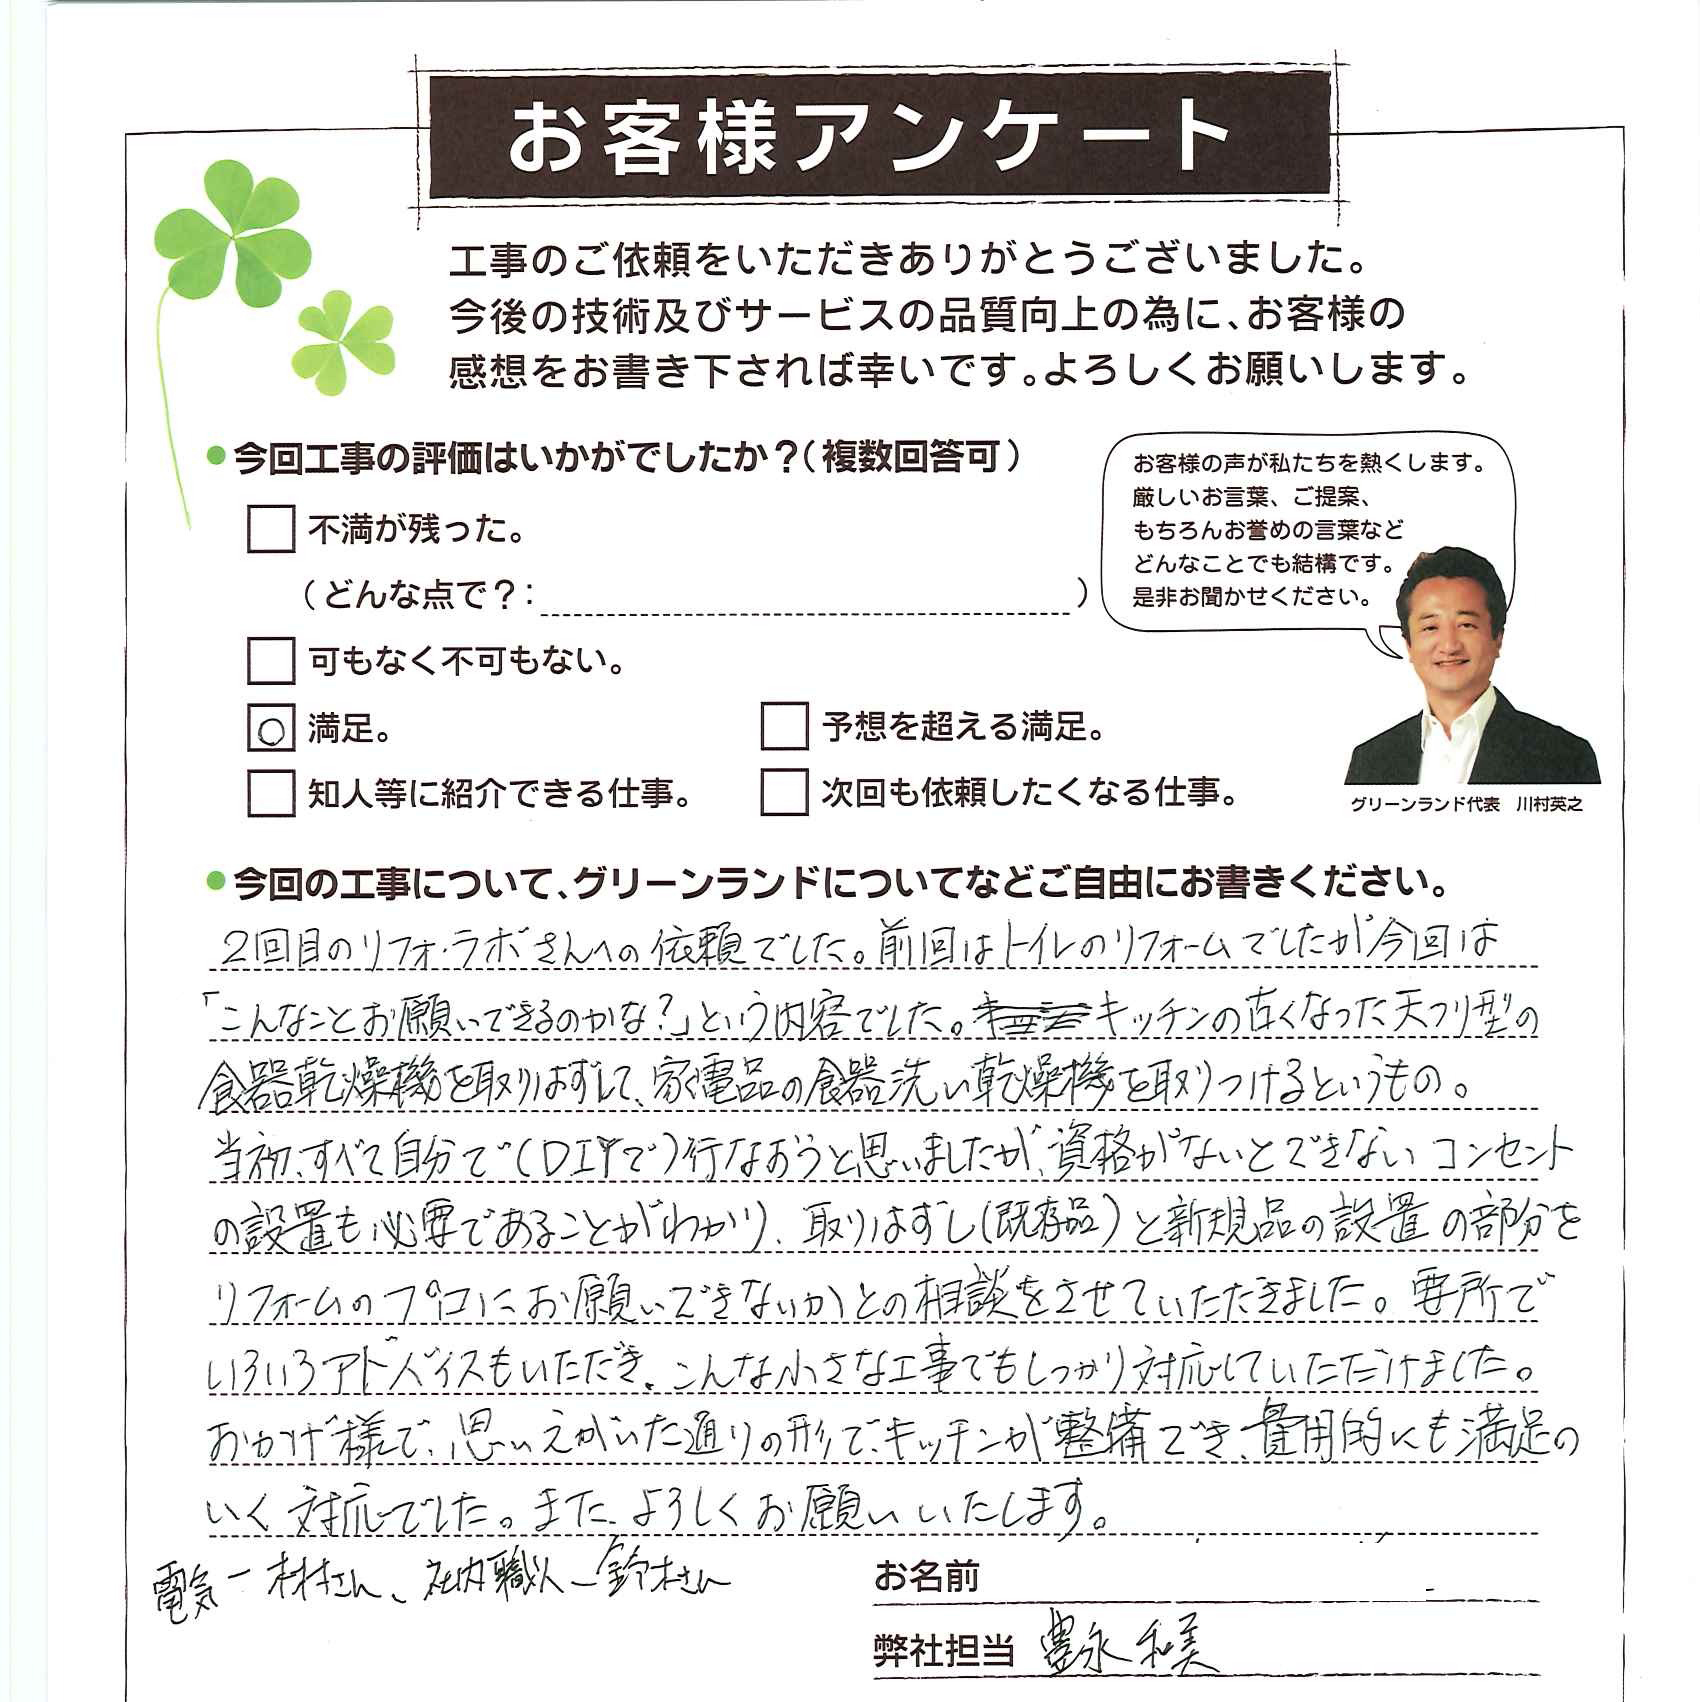 お客様アンケート
工事のご依頼をいただきありがとうございました。
今後の技術及びサービスの品質向上の為に、お客様の
感想をお書き下されば幸いです。よろしくお願いします。
●今回工事の評価はいかがでしたか?(複数回答可)
お客様の声が私たちを熱くします。
厳しいお言葉、ご提案、
もちろんお誉めの言葉など
どんなことでも結構です。
是非お聞かせください。
不満が残った。
(どんな点で?: )
可もなく不可もない。
○ 満足。
予想を超える満足。
知人等に紹介できる仕事。
次回も依頼したくなる仕事。
グリーンランド代表 川村英之
●今回の工事について、グリーンランドについてなどご自由にお書きください。
2回目のリフォ・ラボさんへの依頼でした。前回はトイレのリフォームでしたが今回は
「こんなことお願いできるのかな?」という内容でした。キッチンの古くなった天フリ型の
食器乾燥機を取りはずして、家電品の食器洗い乾燥機を取りつけるというもの。
当初、すべて自分で(DIYで)行なおうと思いましたが、資格がないとできないコンセント
の設置も必要であることがわかり、取りはずし(既存品)と新規品の設置の部分を
リフォームのプロにお願いできないかとの相談をさせていただきました。要所で
いろいろアドバイスもいただき、こんな小さな工事でもしっかり対応していただけました。
おかげ様で、思いえがいた通りの形で、キッチンが整備でき、費用的にも満足の
いく対応でした。また、よろしくお願いいたします。
電気ー木村さん、社内職人ー鈴木さん
お名前
弊社担当 豊永 和美